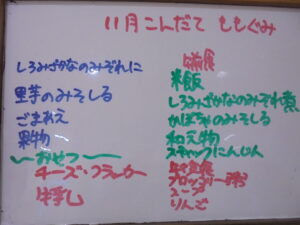 11月こんだて ももぐみ
しろみざかなのみぞれに
里芋のみそしる
ごまあえ
果物
〜おやつ〜
チーズ・クラッカー
牛乳
米飯
しろみざかなのみぞれ煮
かぼちゃのみそしる
和え物
スティックにんじん
スープ
りんご